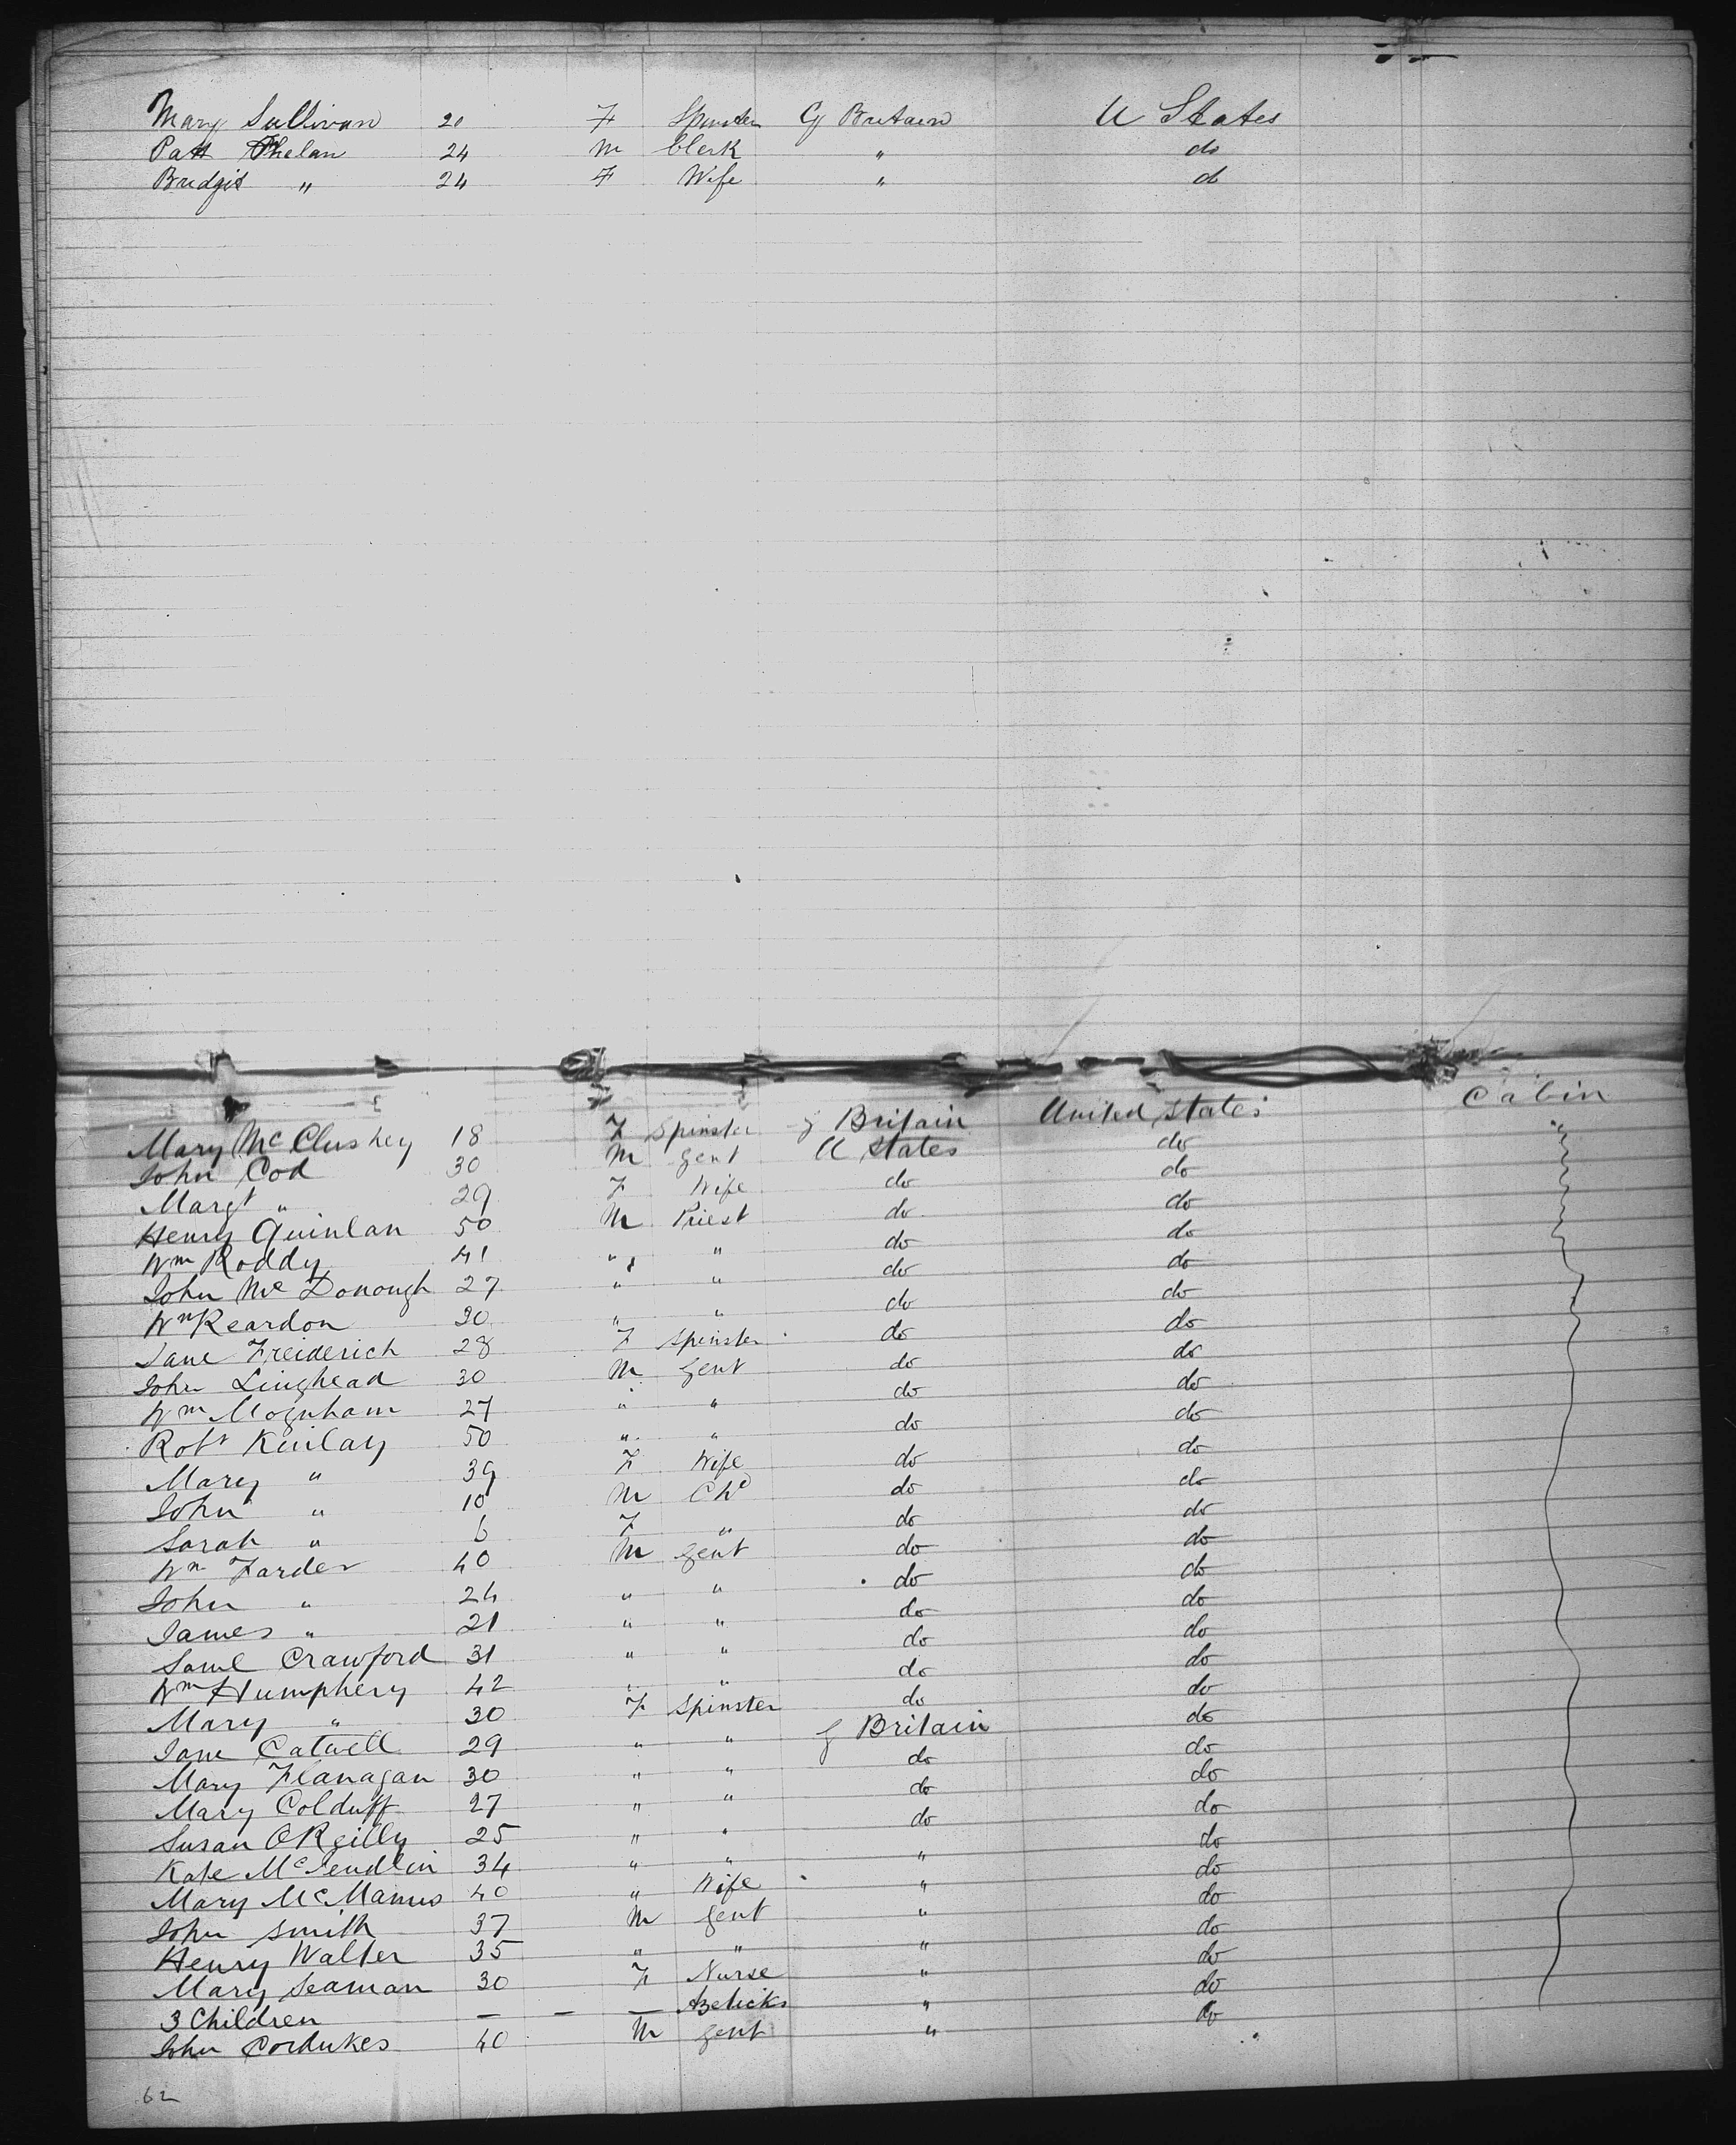 Mary Sullivan 20 F Spinster G Britain U States
Patt Phelan 24 M Clerk " do
Bridgit " 24 F Wife " do
Mary McCluskey 18 F Spinster G Britain United States Cabin
John Cod 30 M Gent U States do "
Margt " 29 F Wife do do
Henry Quinlan 50 M Priest do do
Wm Roddy 41 " " do do
John McDonough 27 " " do do
Wm Reardon 30 " " do do
Jane Freiderich 28 F Spinster do do
John Linghead 30 M Gent do do
Wm Mognham 27 " " do do
Robt Kinlay 50 " " do do
Mary " 39 F Wife do do
John " 10 M Chd do do
Sarah " 6 F " do do
Wm Farder 40 M Gent do do
John " 24 " " do do
James " 21 " " do do
Saml Crawford 31 " " do do
Wm Humphery 42 " " do do
Mary " 30 F Spinster do do
Jane Catwell 29 " " G Britain do
Mary Flanagan 30 " " do do
Mary Colduff 27 " " do do
Susan OReilly 25 " " do do
Kate 34 " " " do
Mary McManus 40 " Wife " do
John Smith 37 M Gent " do
Henry Walter 35 " " " do
Mary Seaman 30 F Nurse " do
3 Children — — — " do
John Cordukes 40 M Gent " do
62